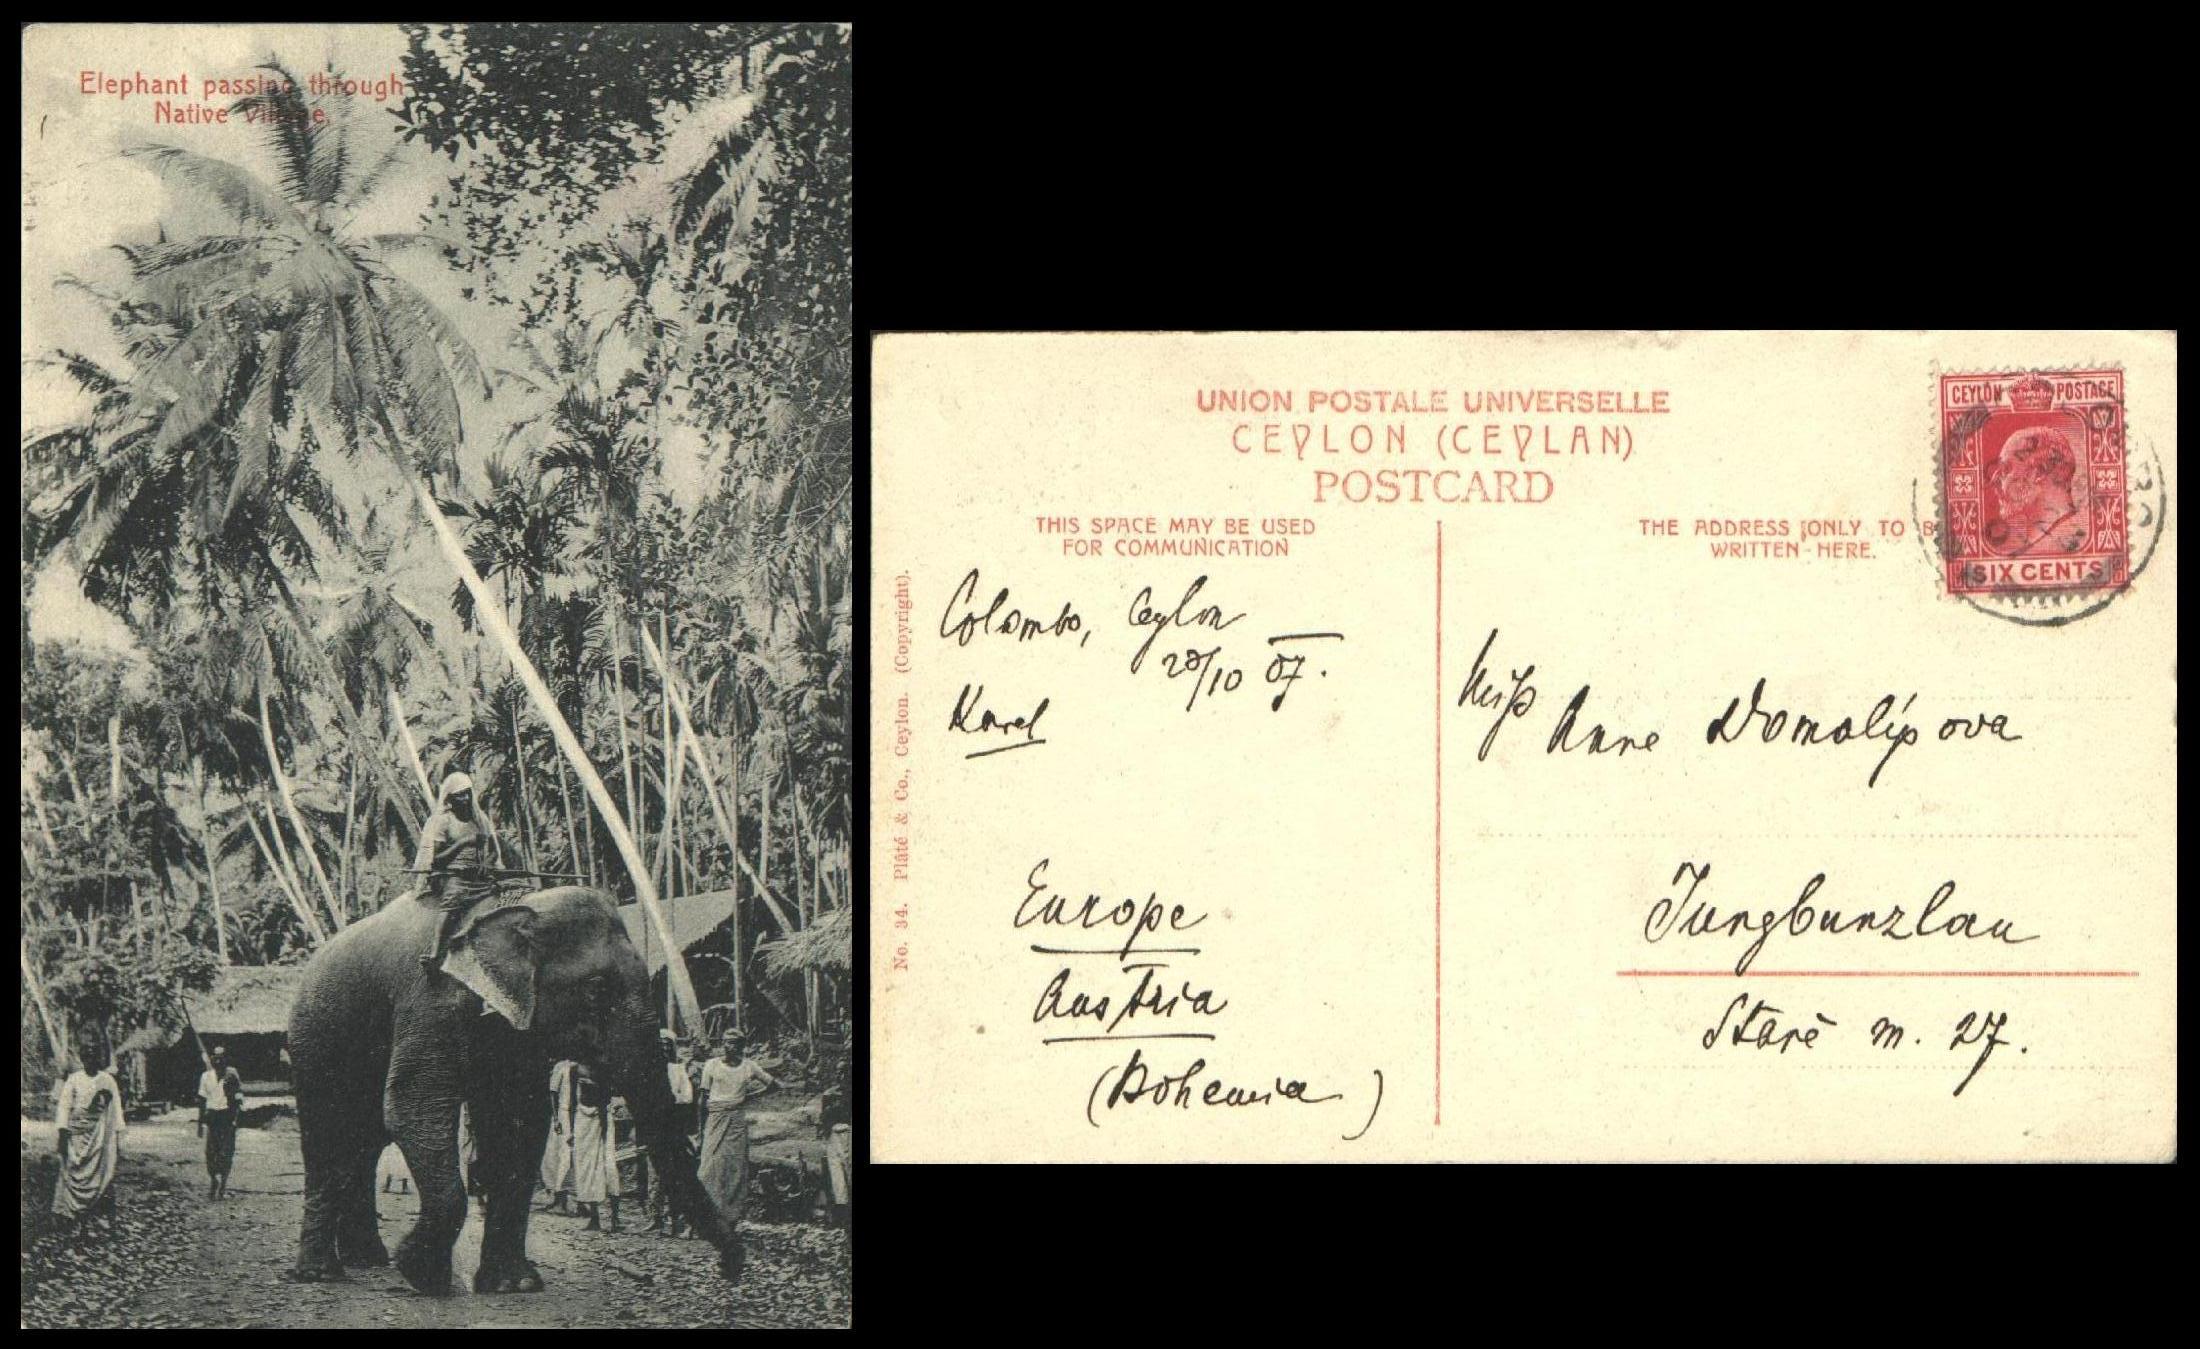 Elephant passing through
Native Village.
UNION POSTALE UNIVERSELLE
CEYLON (CEYLAN)
POSTCARD
THIS SPACE MAY BE USED
FOR COMMUNICATION
THE ADDRESS ONLY TO B
WRITTEN HERE.
CEYLON POSTAGE
SIX CENTS
No. 34. Plâté & Co., Ceylon. (Copyright).
Colombo, Ceylon
20/10 07.
Karel
Europe
Austria
(Bohemia)
Miss Anne Domalípova
Jungbunzlau
Staré m. 27.